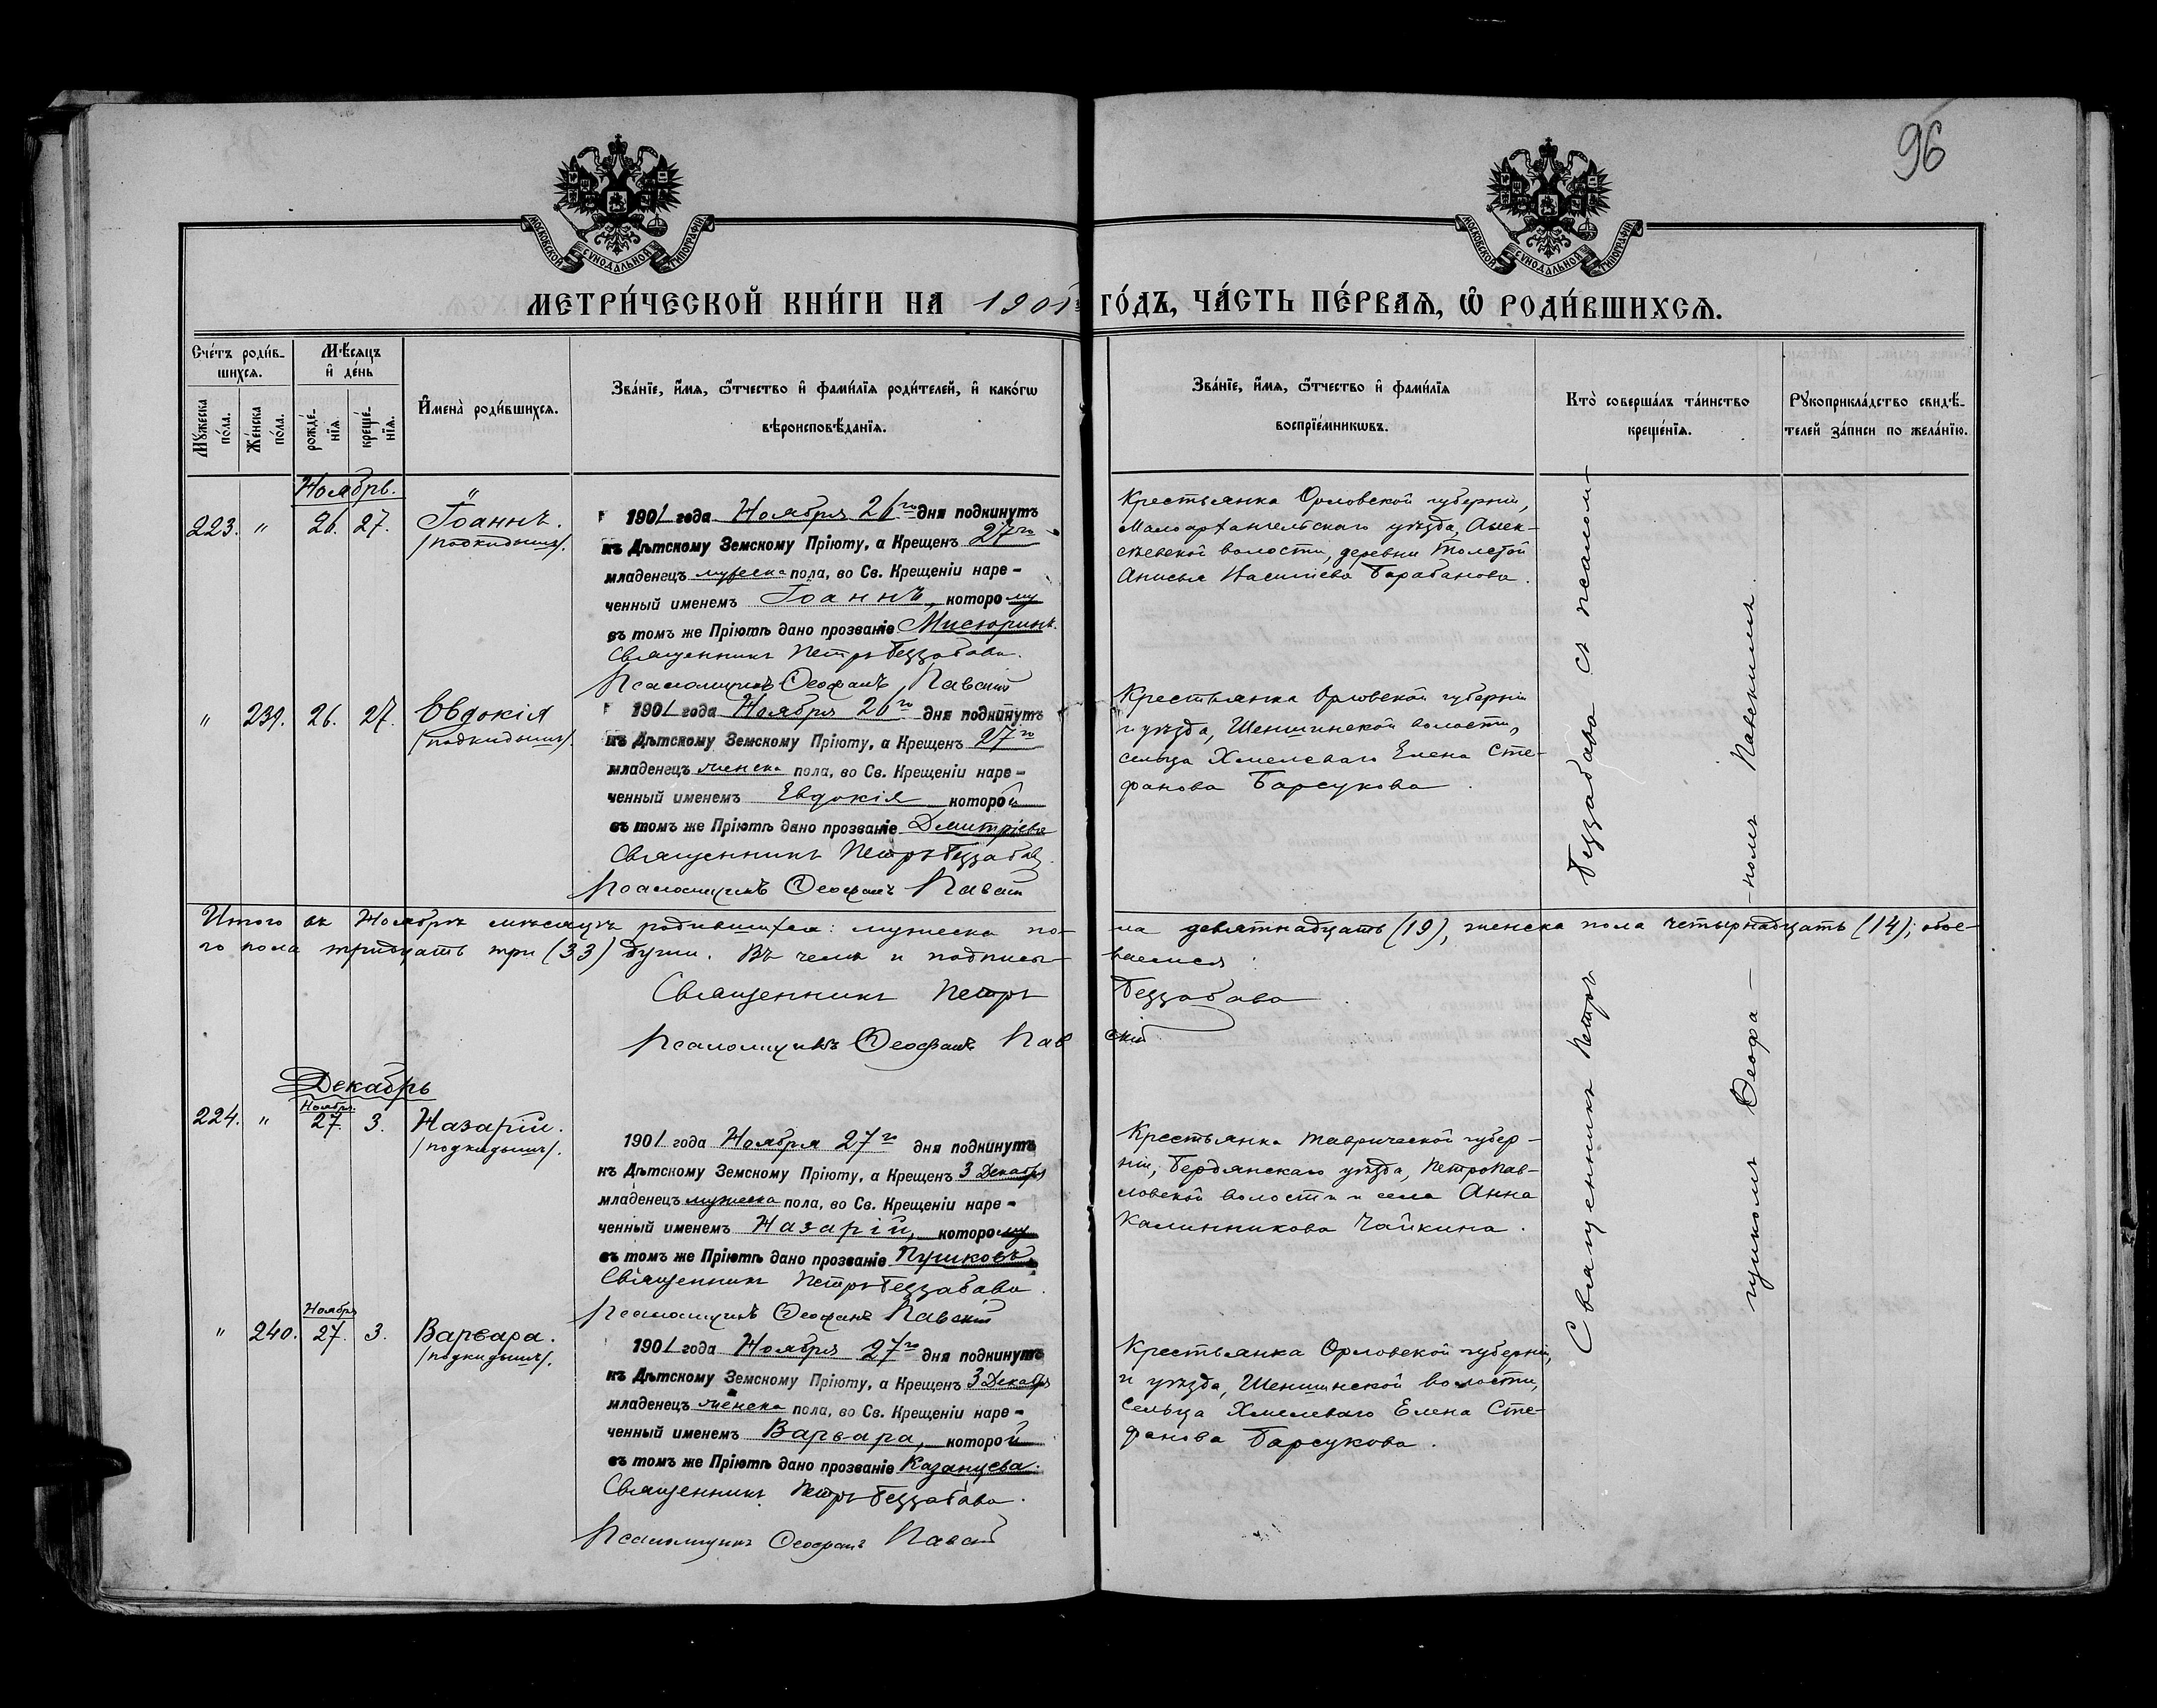 96
МОСКОВСКОЙ СѴНОДАЛЬНОЙ ТИПОГРАФІИ
МОСКОВСКОЙ СѴНОДАЛЬНОЙ ТИПОГРАФІИ
МЕТРИ́ЧЕСКОЙ КНИ́ГИ НА 1901 ГО́ДЪ, ЧА́СТЬ ПЕ́РВАѦ, Ѡ҆ РОДИ́ВШИХСѦ.
Сче́тъ роди́в-
шихсѧ.
Мꙋ́жеска по́ла.
Же́нска по́ла.
Мѣ́сѧцъ и҆ де́нь
рожде́-нїѧ.
креще́-нїѧ.
И҆мена̀ роди́вшихсѧ.
Зва́нїе, и҆́мѧ, ѻ҆́тчество и҆ фами́лїѧ роди́телей, и҆ како́гѡ
вѣроисповѣ́данїѧ.
Зва́нїе, и҆́мѧ, ѻ҆́тчество и҆ фами́лїѧ
воспрїе́мникѡвъ.
Кто̀ соверша́лъ та́инство
креще́нїѧ.
Рꙋкоприкла́дство свидѣ́-
телей за́писи по жела́нїю.
Ноябрь.
223. " 26. 27. Іоаннъ.
/подкидышъ/.
1901 года Ноября 26го дня подкинутъ
къ Дѣтскому Земскому Пріюту, а Крещенъ 27го
младенецъ мужеска пола, во Св. Крещеніи наре-
ченный именемъ Іоаннъ, которому
въ томъ же Пріютѣ дано прозваніе Мисюринъ.
Священникъ Петръ Беззабава.
Псаломщикъ Ѳеофанъ Павскій
Крестьянка Орловской губерніи,
Малоархангельскаго уѣзда, Алек-
сѣевской волости, деревни Толстой
Анисья Васильева Барабанова.
" 239. 26. 27. Евдокія
/подкидышъ/.
1901 года Ноября 26го дня подкинутъ
къ Дѣтскому Земскому Пріюту, а Крещенъ 27го
младенецъ женска пола, во Св. Крещеніи наре-
ченный именемъ Евдокія которой
въ томъ же Пріютѣ дано прозваніе Дмитріева
Священникъ Петръ Беззабава.
Псаломщикъ Ѳеофанъ Павскій
Крестьянка Орловской губерніи
и уѣзда, Шеншинской волости,
сельца Хмелеваго Елена Сте-
фанова Барсукова.
Итого въ Ноябрѣ мѣсяцѣ родившихся: мужеска по-
ла девятнадцать (19), женска пола четырнадцать (14); обое-
го пола тридцать три (33) души. Въ чемъ и подписы-
ваемся:
Священникъ Петръ Беззабава
Псаломщикъ Ѳеофанъ Павскій
Декабрь
Ноября
224. " 27. 3. Назарій.
/подкидышъ/.
1901 года Ноября 27го дня подкинутъ
къ Дѣтскому Земскому Пріюту, а Крещенъ 3 Декабря
младенецъ мужеска пола, во Св. Крещеніи наре-
ченный именемъ Назарій, которому
въ томъ же Пріютѣ дано прозваніе Пушковъ.
Священникъ Петръ Беззабава.
Псаломщикъ Ѳеофанъ Павскій
Крестьянка Таврической губер-
ніи, Бердянскаго уѣзда, Петропав-
ловской волости и села Анна
Калинникова Чайкина.
Ноября
" 240. 27. 3. Варвара.
/подкидышъ/.
1901 года Ноября 27го дня подкинутъ
къ Дѣтскому Земскому Пріюту, а Крещенъ 3 Декабря
младенецъ женска пола, во Св. Крещеніи наре-
ченный именемъ Варвара, которой
въ томъ же Пріютѣ дано прозваніе Казанцева.
Священникъ Петръ Беззабава.
Псаломщикъ Ѳеофанъ Павскій
Крестьянка Орловской губерніи,
и уѣзда, Шеншинской волости,
сельца Хмелеваго Елена Сте-
фанова Барсукова.
Священникъ Петръ Беззабава съ псалом-
щикомъ Ѳеофа-номъ Павскимъ.